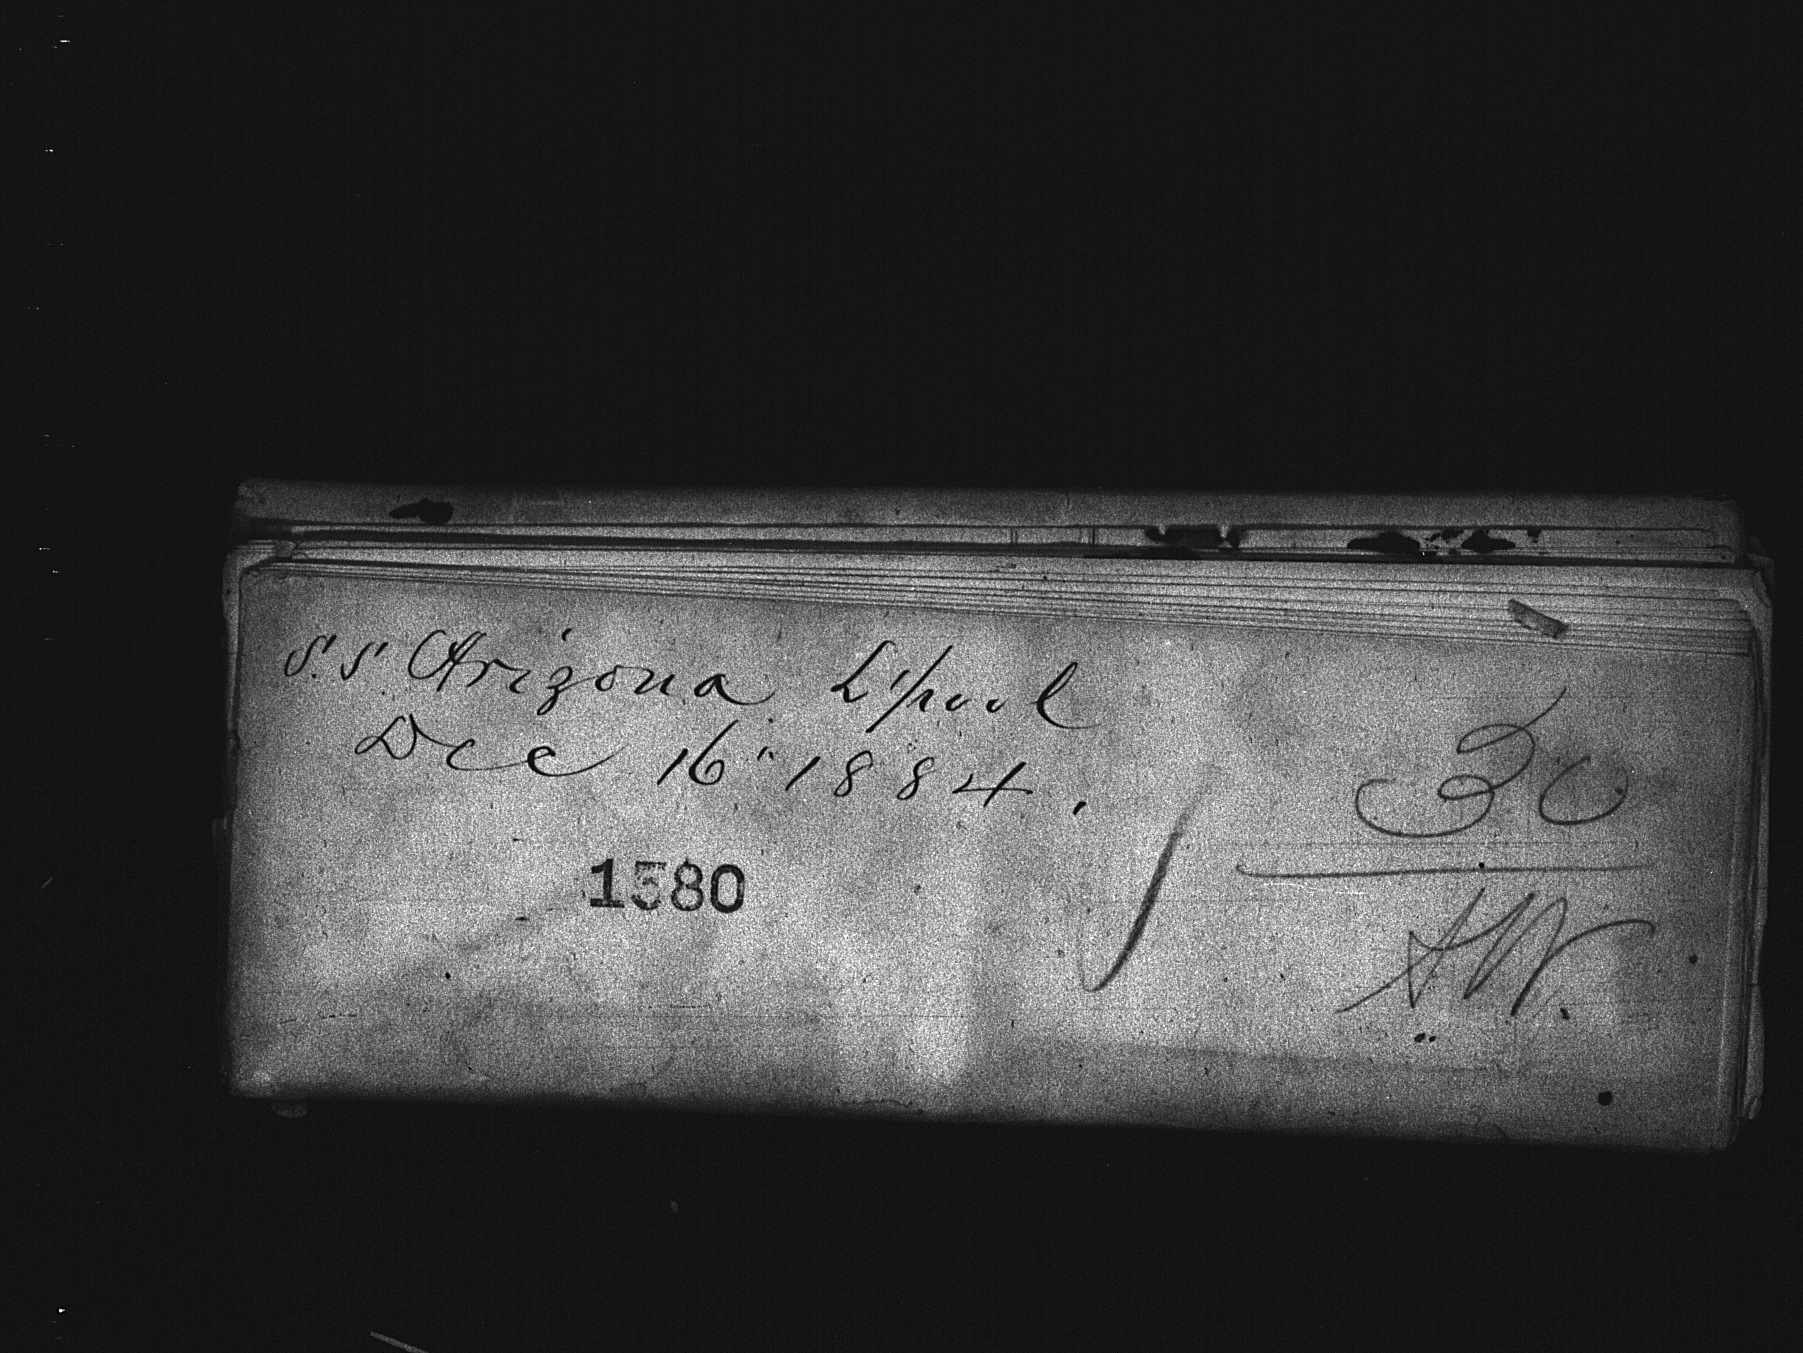 S.S. Arizona L'pool
Dec 16" 1884.
30
1580